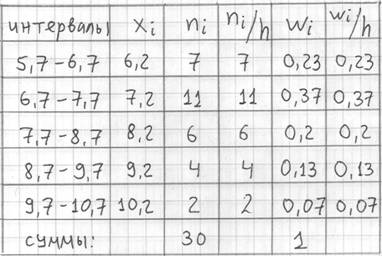 интервалы xi ni ni/h wi wi/h
5,7-6,7 6,2 7 7 0,23 0,23
6,7-7,7 7,2 11 11 0,37 0,37
7,7-8,7 8,2 6 6 0,2 0,2
8,7-9,7 9,2 4 4 0,13 0,13
9,7-10,7 10,2 2 2 0,07 0,07
суммы: 30 1